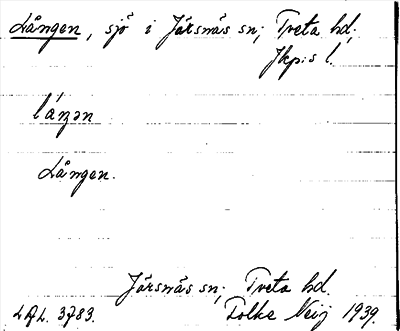 Lången, sjö i Järsnäs sn; Tveta hd;
Jkp:s l.
låŋən
Lången.
Järsnäs sn; Tveta hd.
LAL. 3783. Folke Neij 1939.